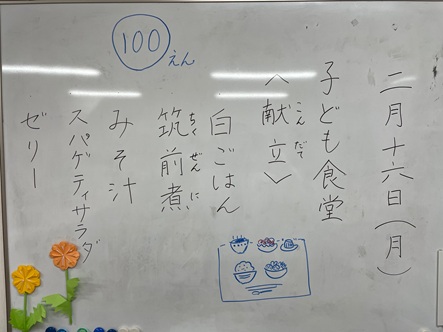 二月十六日(月)
子ども食堂
〈献立〉
こんだて
白ごはん
筑前煮
ちくぜんに
みそ汁
スパゲティサラダ
ゼリー
100えん